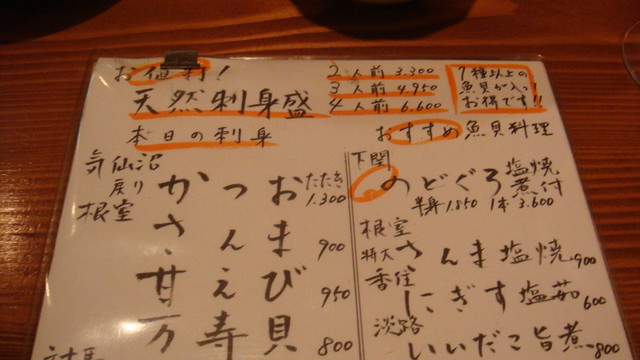 お値打!
天然刺身盛
2人前 3.300
3人前 4.950
4人前 6.600
7種以上の
魚貝が入っ
お得です!!
本日の刺身
気仙沼
戻り かつお たたき 1.300
根室
さんま 900
甘えび 950
万寿貝 800
対馬
おすすめ魚貝料理
下関
のどぐろ 塩焼 煮付
半身1.850 1本3.600
根室
特大 さんま塩焼 900
香住
にぎす塩茹 600
淡路
いいだこ旨煮 800